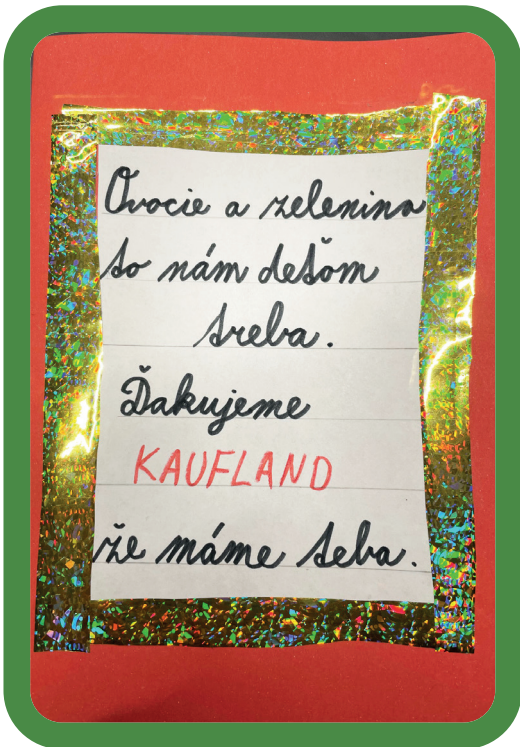 Ovocie a zelenina
to nám deťom
treba.
Ďakujeme
KAUFLAND
že máme teba.